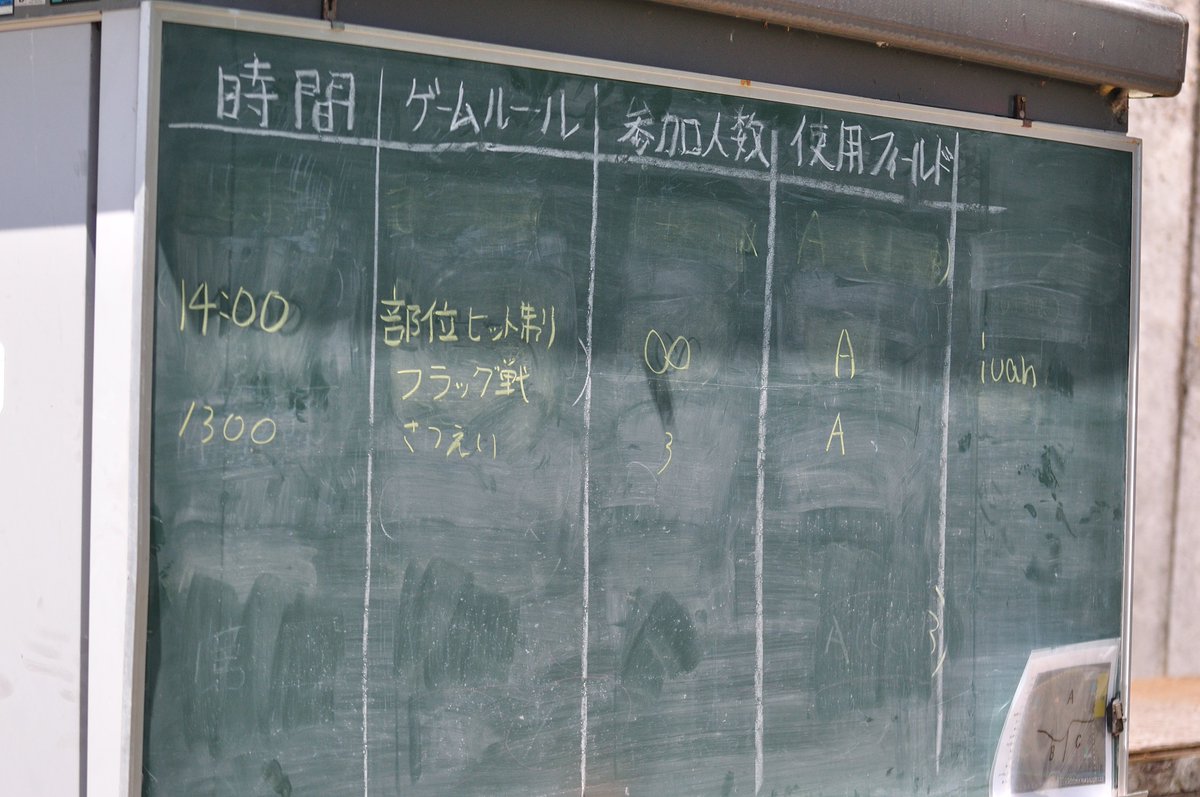 時間 ゲームルール 参加人数 使用フィールド
14:00 部位ヒット制 ∞ A ivan
フラッグ戦
1300 さつえい 3 A
A
A
B C